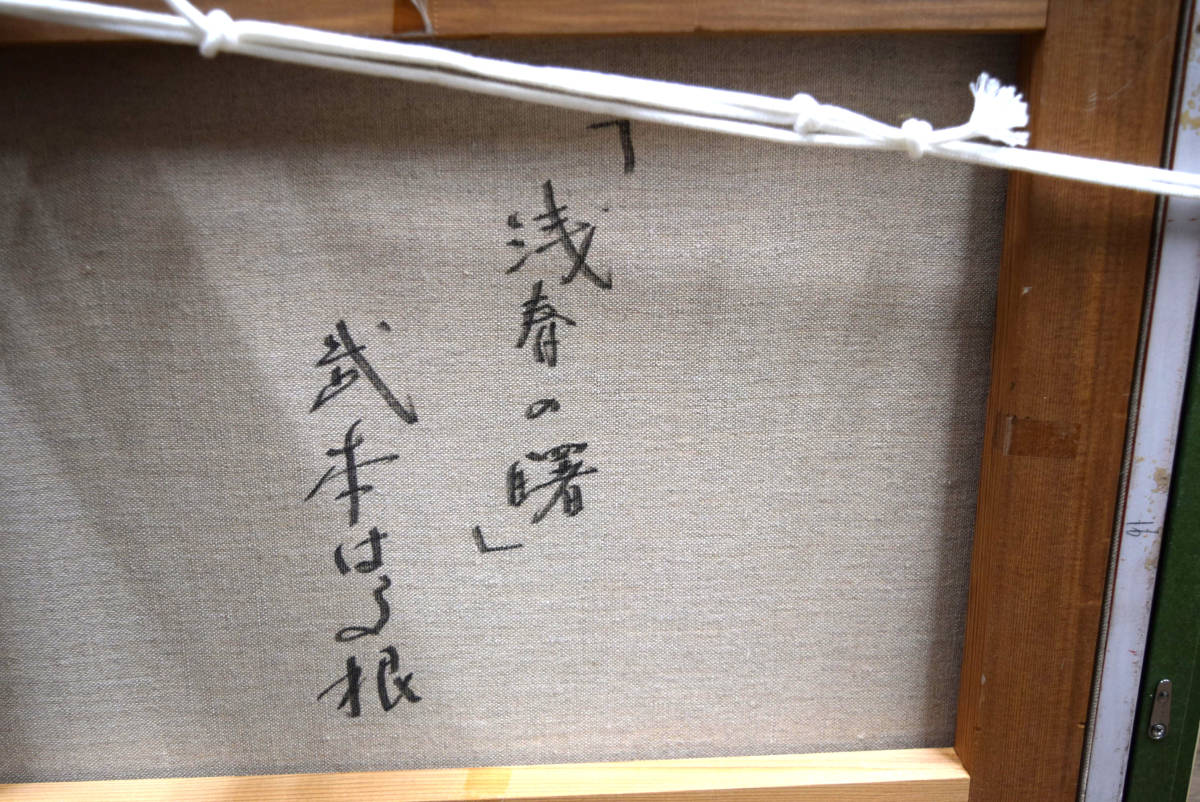 「浅春の曙」
武本はる根
91